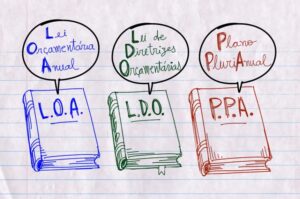 Lei
Orçamentária
Anual
L.O.A.
Lei de
Diretrizes
Orçamentárias
L.D.O.
Plano
PluriAnual
P.P.A.